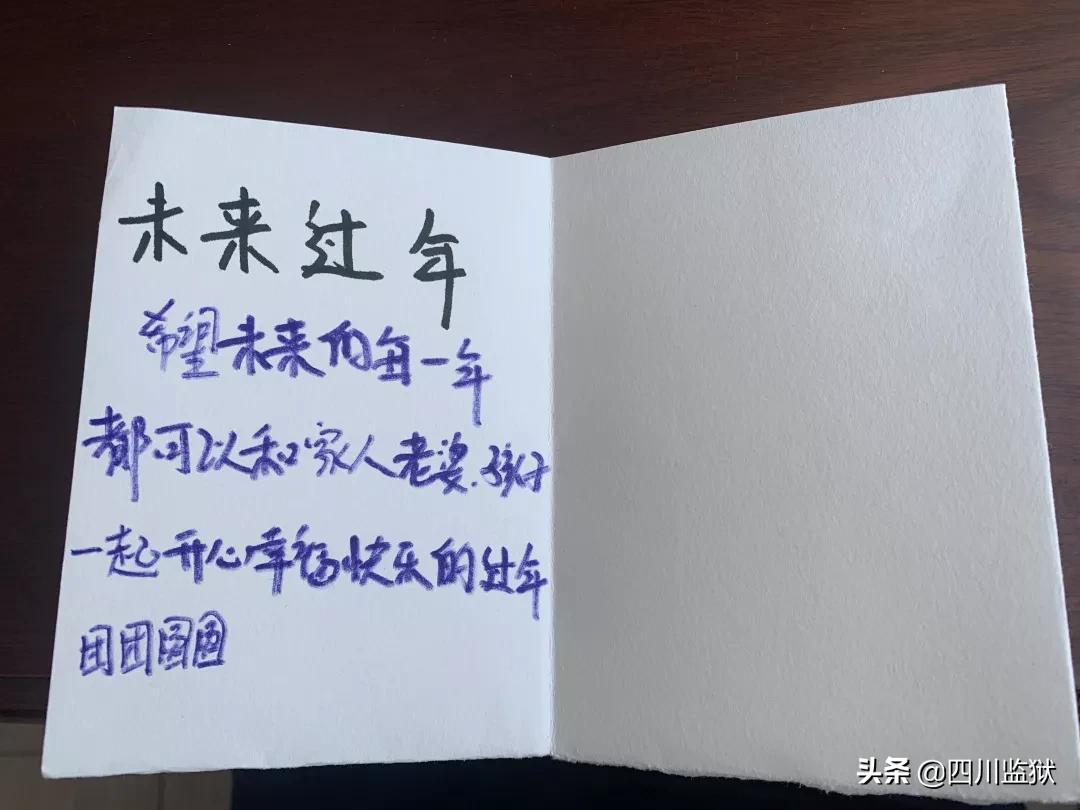 未来过年
希望未来的每一年
都可以和家人老婆.孩子
一起开心幸福快乐的过年
团团圆圆
头条 @四川监狱